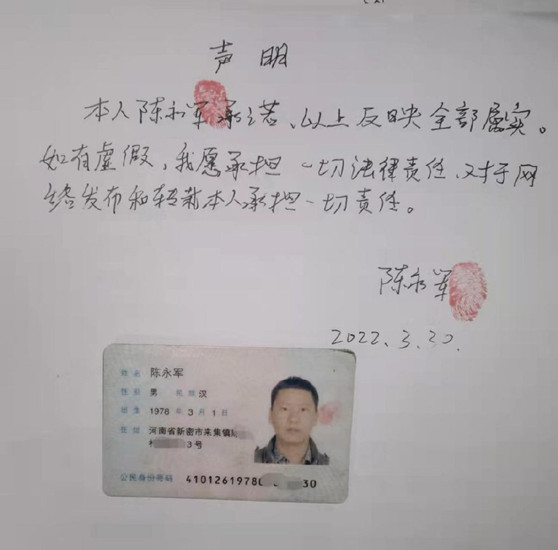 声明
本人陈永军承诺、以上反映全部属实。
如有虚假，我愿承担一切法律责任、对于网
络发布和转载本人承担一切责任。
陈永军
2022.3.30.
姓名 陈永军
性别 男 民族 汉
出生 1978 年 3 月 1 日
住址 河南省新密市来集镇
3号
公民身份号码 41012619780 30